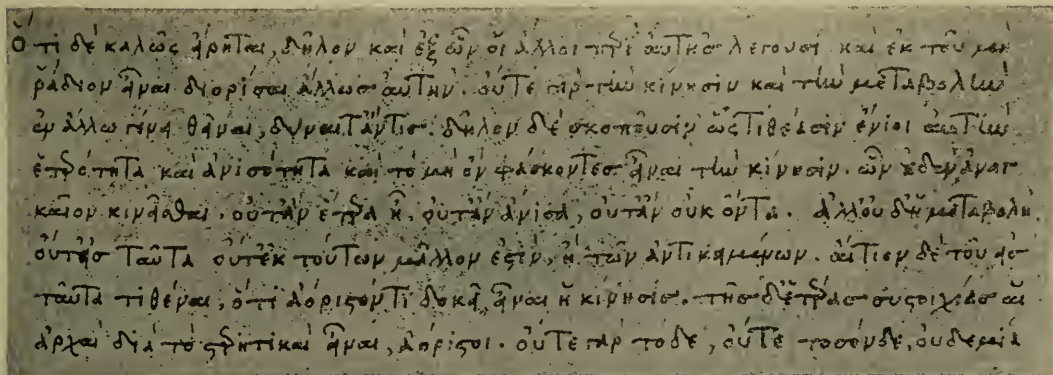 Ὅτι δὲ καλῶς εἴρηται, δῆλον καὶ ἐξ ὧν οἱ ἄλλοι περὶ αὐτῆς λέγουσι καὶ ἐκ τοῦ μὴ
ῥάδιον εἶναι διορίσαι ἄλλως αὐτήν. οὔτε γὰρ τὴν κίνησιν καὶ τὴν μεταβολὴν
ἐν ἄλλω γένει θεῖναι, δύναιτ' ἄν τις. δῆλον δὲ σκοποῦσιν ὡς τιθέασιν ἔνιοι αὐτὴν
ἑτερότητα καὶ ἀνισότητα καὶ τὸ μὴ ὂν φάσκοντες εἶναι τὴν κίνησιν. ὧν οὐδὲν ἀναγ
καῖον κινεῖσθαι. οὔτ' ἂν ἕτερα ᾖ. οὔτ' ἂν ἄνισα, οὔτ' ἂν οὐκ ὄντα. ἀλλ' οὐδ' ἡ μεταβολὴ
οὔτ' εἰς ταῦτα οὔτ' ἐκ τούτων μᾶλλον ἐστὶν, ἢ τῶν ἀντικειμένων. αἴτιον δὲ τοῦ εἰς
ταῦτα τιθέναι, ὅτι ἀόριστόν τι δοκεῖ εἶναι ἡ κίνησις. τῆς δ' ἑτέρας συστοιχίας αἱ
ἀρχαὶ διὰ τὸ στερητικαὶ εἶναι, ἀόριστοι. οὔτε γὰρ τόδε, οὔτε τοσόνδε, οὐδεμία